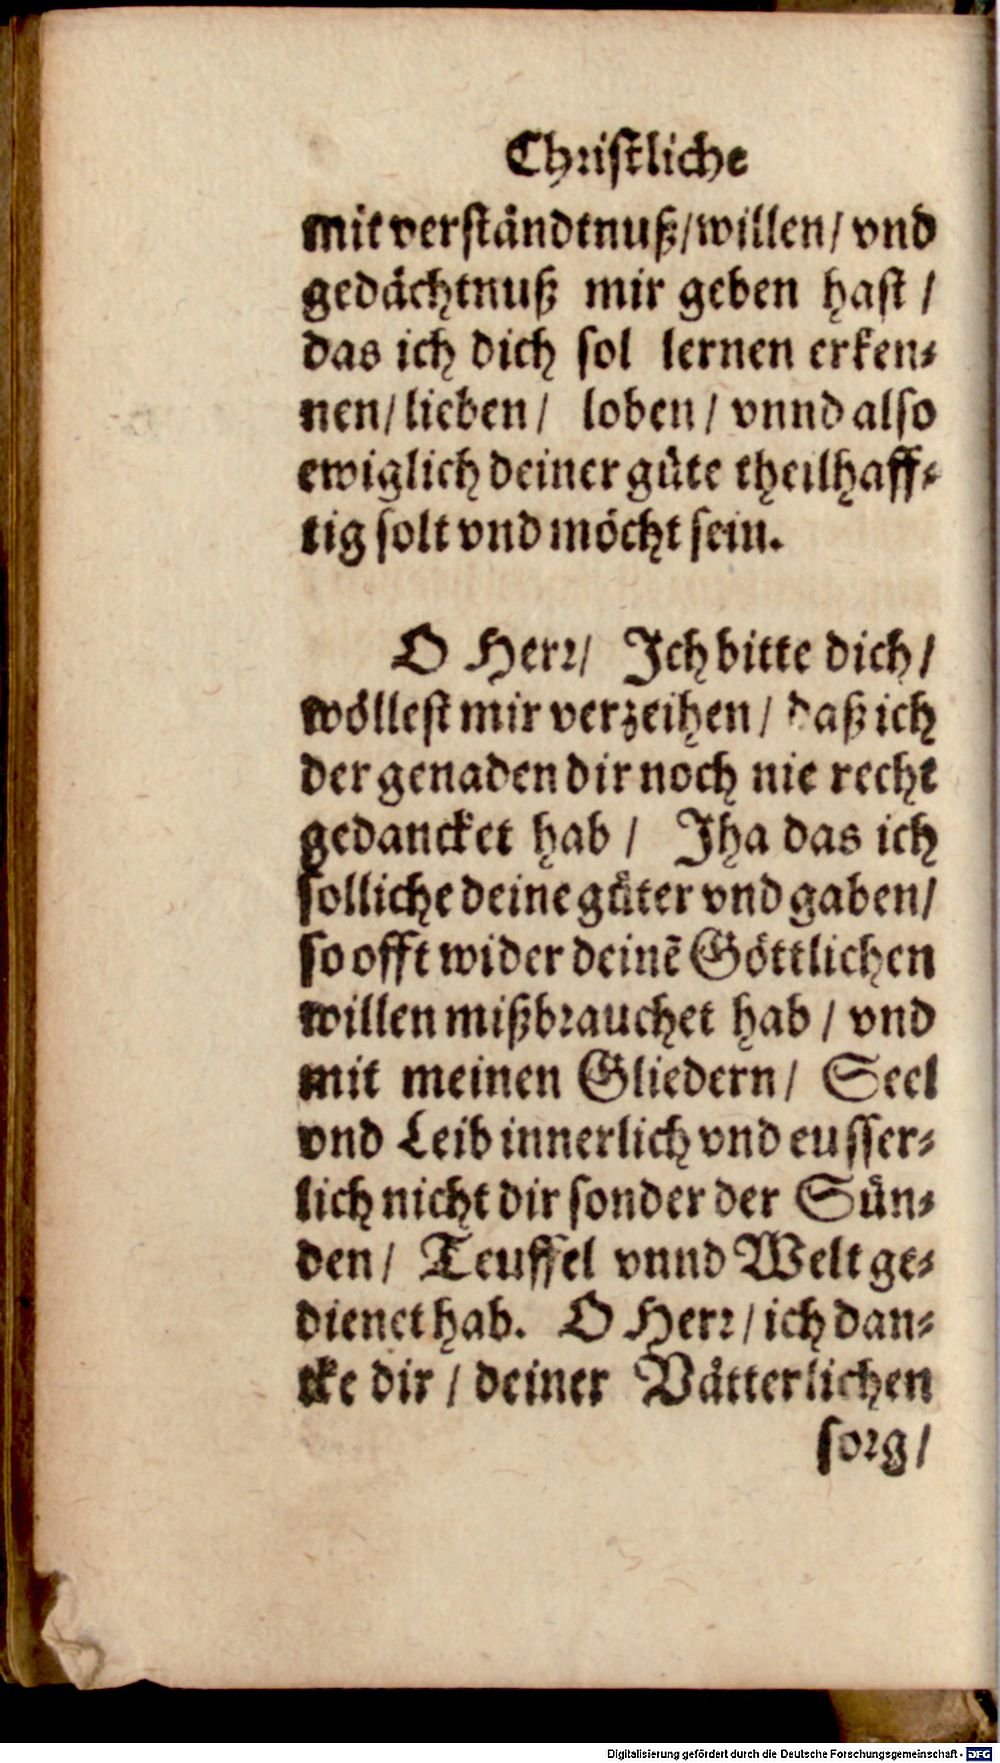 Christliche
mit verständtnuß/ willen/ vnd
gedächtnuß mir geben hast /
das ich dich sol lernen erken⸗
nen/ lieben/ loben/ vnnd also
ewiglich deiner güte theilhaff⸗
tig solt vnd möcht sein.
O Herr/ Ich bitte dich/
wöllest mir verzeihen / daß ich
der genaden dir noch nie recht
gedancket hab / Iha das ich
solliche deine güter vnd gaben/
so offt wider deinẽ Göttlichen
willen mißbrauchet hab / vnd
mit meinen Gliedern/ Seel
vnd Leib innerlich vnd eusser⸗
lich nicht dir sonder der Sün⸗
den/ Teuffel vnnd Welt ge⸗
dienet hab. O Herr/ ich dan⸗
cke dir / deiner Vätterlichen
sorg/
Digitalisierung gefördert durch die Deutsche Forschungsgemeinschaft - DFG